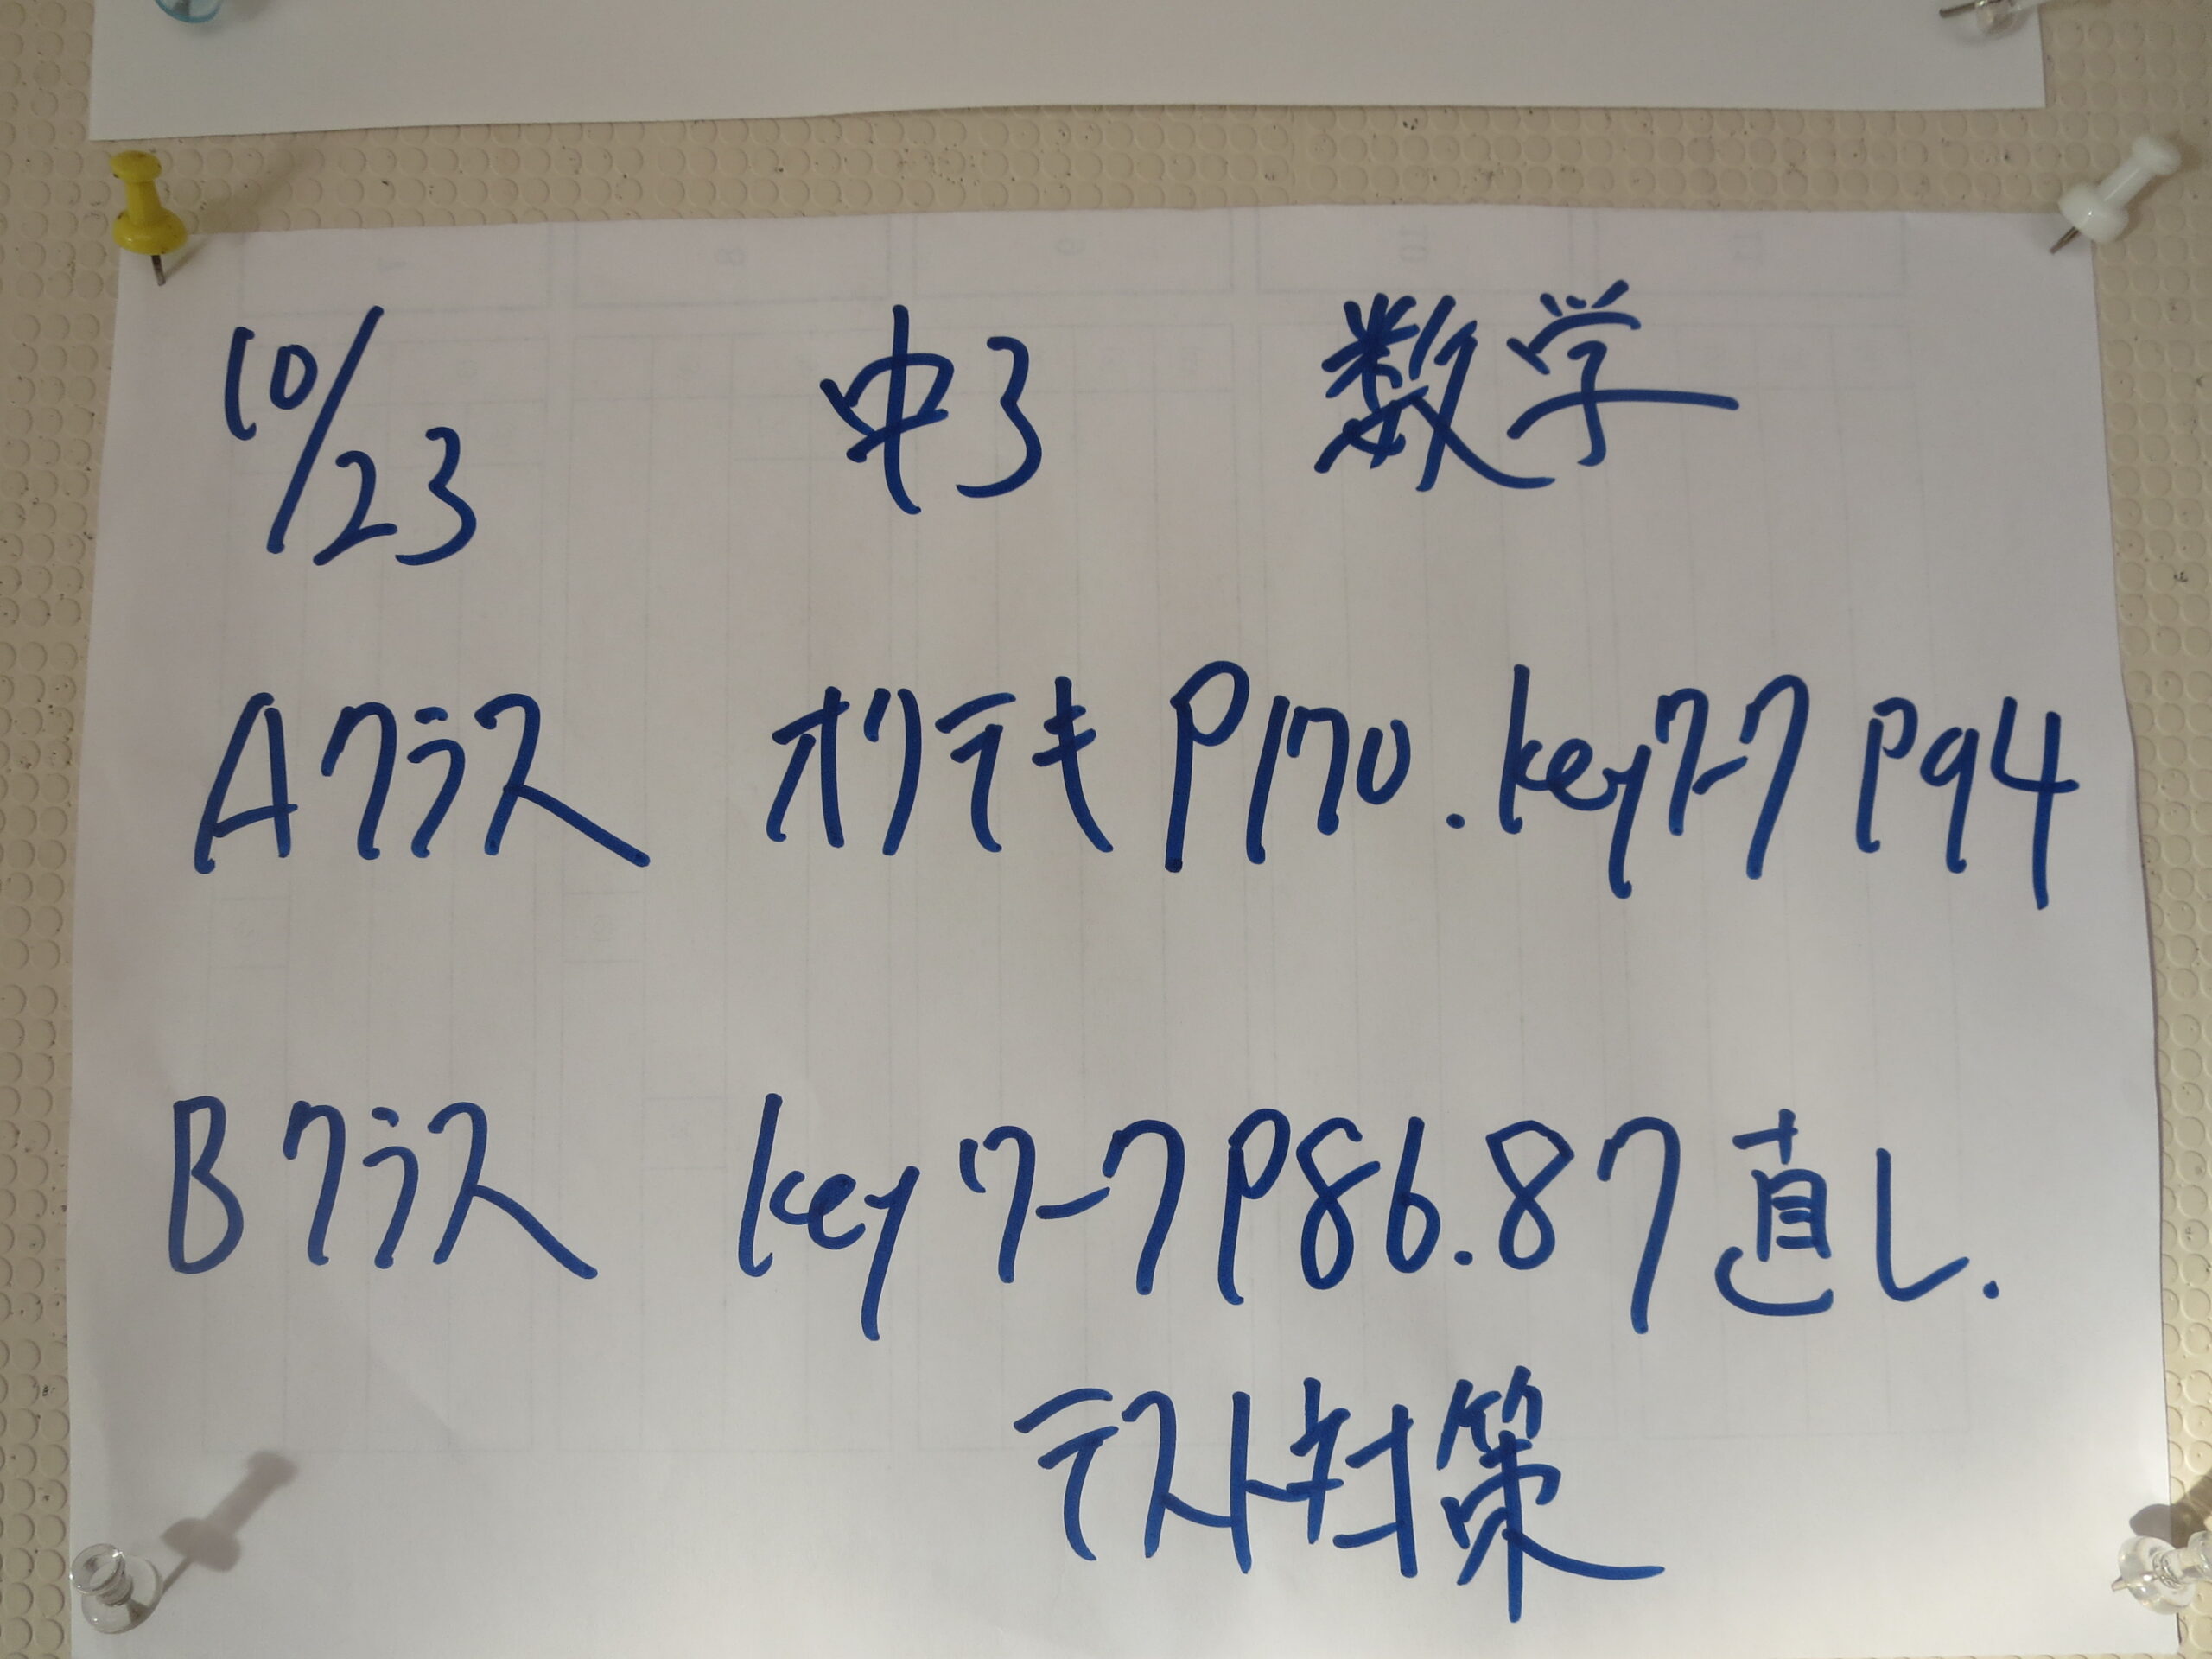 10/23 中3 数学
Aクラス オリテキP170.keyワークP94
Bクラス keyワークP86.87直し.
テスト対策